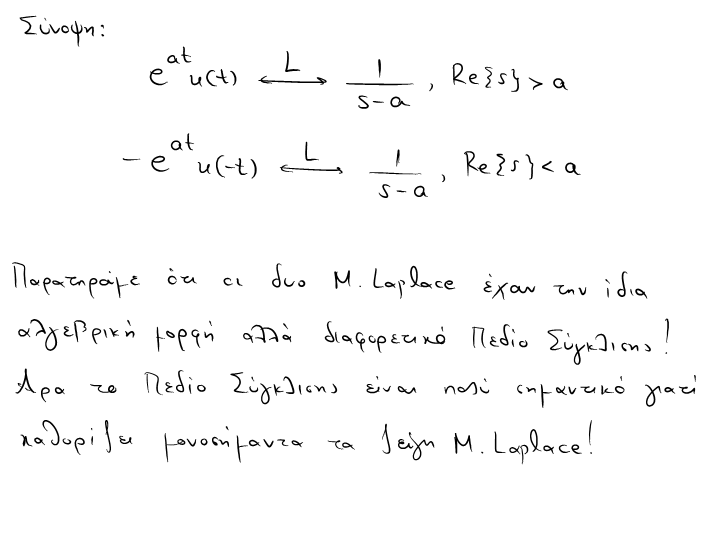 Σύνοψη:
e^{at} u(t) \xleftrightarrow{L} \frac{1}{s-a}, Re{s} > a
-e^{at} u(-t) \xleftrightarrow{L} \frac{1}{s-a}, Re{s} < a
Παρατηρούμε ότι οι δυο Μ. Laplace έχουν την ίδια
αλγεβρική μορφή αλλά διαφορετικό Πεδίο Σύγκλισης!
Άρα το Πεδίο Σύγκλισης είναι πολύ σημαντικό γιατί
καθορίζει μονοσήμαντα τα ζεύγη Μ. Laplace!